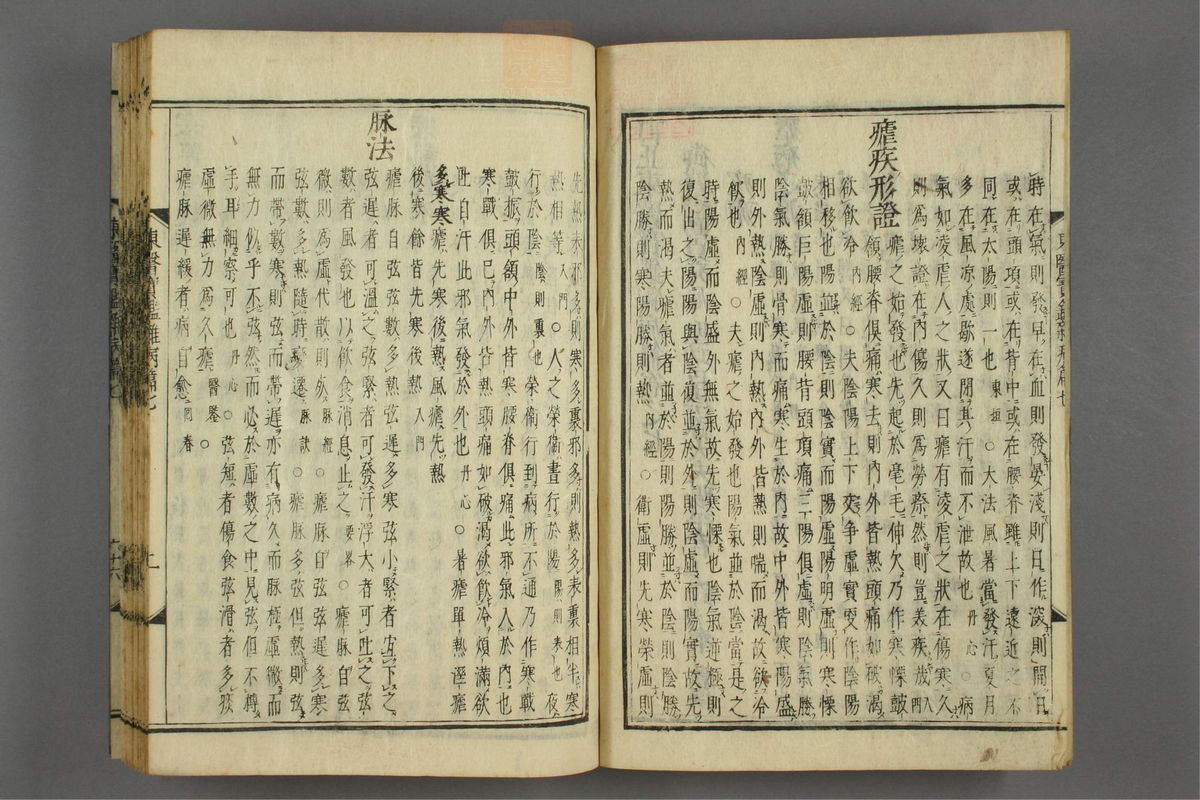 時在氣則發早在血則發晏淺則日作深則間日
或在頭項或在背中或在腰脊雖上下遠近之不
同在太陽則一也東垣○大法風暑當發汗夏月
多在風凉處歇遂閉其汗而不泄故也丹心○病
氣如凌虐人之狀又曰瘧有凌虐之狀在傷寒久
則爲壞證在內傷久則爲勞瘵然則豈美疾哉入門
瘧疾形證
瘧之始發也先起於毫毛伸欠乃作寒慄鼓
頷腰脊俱痛寒去則內外皆熱頭痛如破渴
欲飮冷內經○夫陰陽上下交爭虛實更作陰陽
相移也陽並於陰則陰實而陽虛陽明虛則寒慄
鼓頷巨陽虛則腰背頭項痛三陽俱虛則陰氣勝
陰氣勝則骨寒而痛寒生於內故中外皆寒陽盛
則外熱陰虛則內熱內外皆熱則喘而渴故欲冷
飮也內經○夫瘧之始發也陽氣並於陰當是之
時陽虛而陰盛外無氣故先寒慄也陰氣逆極則
復出之陽陽與陰復並於外則陰虛而陽實故先
熱而渴夫瘧氣者並於陽則陽勝並於陰則陰勝
陰勝則寒陽勝則熱內經○衛虛則先寒榮虛則
先熱表邪多則寒多裏邪多則熱多表裏相半寒
熱相等入門○人之榮衛晝行於陽陽則表也夜
行於陰陰則裏也榮衛行到病所不通乃作寒戰
鼓振頭頷中外皆寒腰脊俱痛此邪氣入於內也
寒戰俱已內外皆熱頭痛如破渴欲飮冷煩滿欲
吐自汗此邪氣發於外也丹心○暑瘧單熱溼瘧
多寒寒瘧先寒後熱風瘧先熱
後寒餘皆先寒後熱入門
脉法
瘧脉自弦弦數多熱弦遲多寒弦小緊者宜下之
弦遲者可溫之弦緊者可發汗浮大者可吐之弦
數者風發也以飮食消息止之要畧○瘧脉自弦
微則爲虛代散則死脉經○瘧脉自弦弦遲多寒
弦數多熱隨時變遷脉訣○瘧脉多弦但熱則弦
而帶數寒則弦而帶遲亦有病久而脉極虛微而
無力似乎不弦然而必於虛數之中見弦但不搏
手耳細察可也丹心○弦短者傷食弦滑者多痰
虛微無力爲久瘧醫鑒○
瘧脉遲緩者病自愈回春